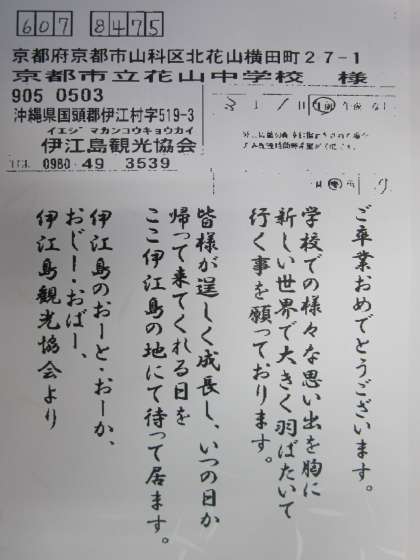 607 8475
京都府京都市山科区北花山横田町27-1
京都市立花山中学校 様
905 0503
沖縄県国頭郡伊江村字519-3
イエジマカンコウキョウカイ
伊江島観光協会
TEL 0980 49 3539
ご卒業おめでとうございます。
学校での様々な思い出を胸に
新しい世界で大きく羽ばたいて
行く事を願っております。
皆様が逞しく成長し、いつの日か
帰って来てくれる日を
ここ伊江島の地にて待って居ます。
伊江島のおーと・おーか、
おじー・おばー、
伊江島観光協会より